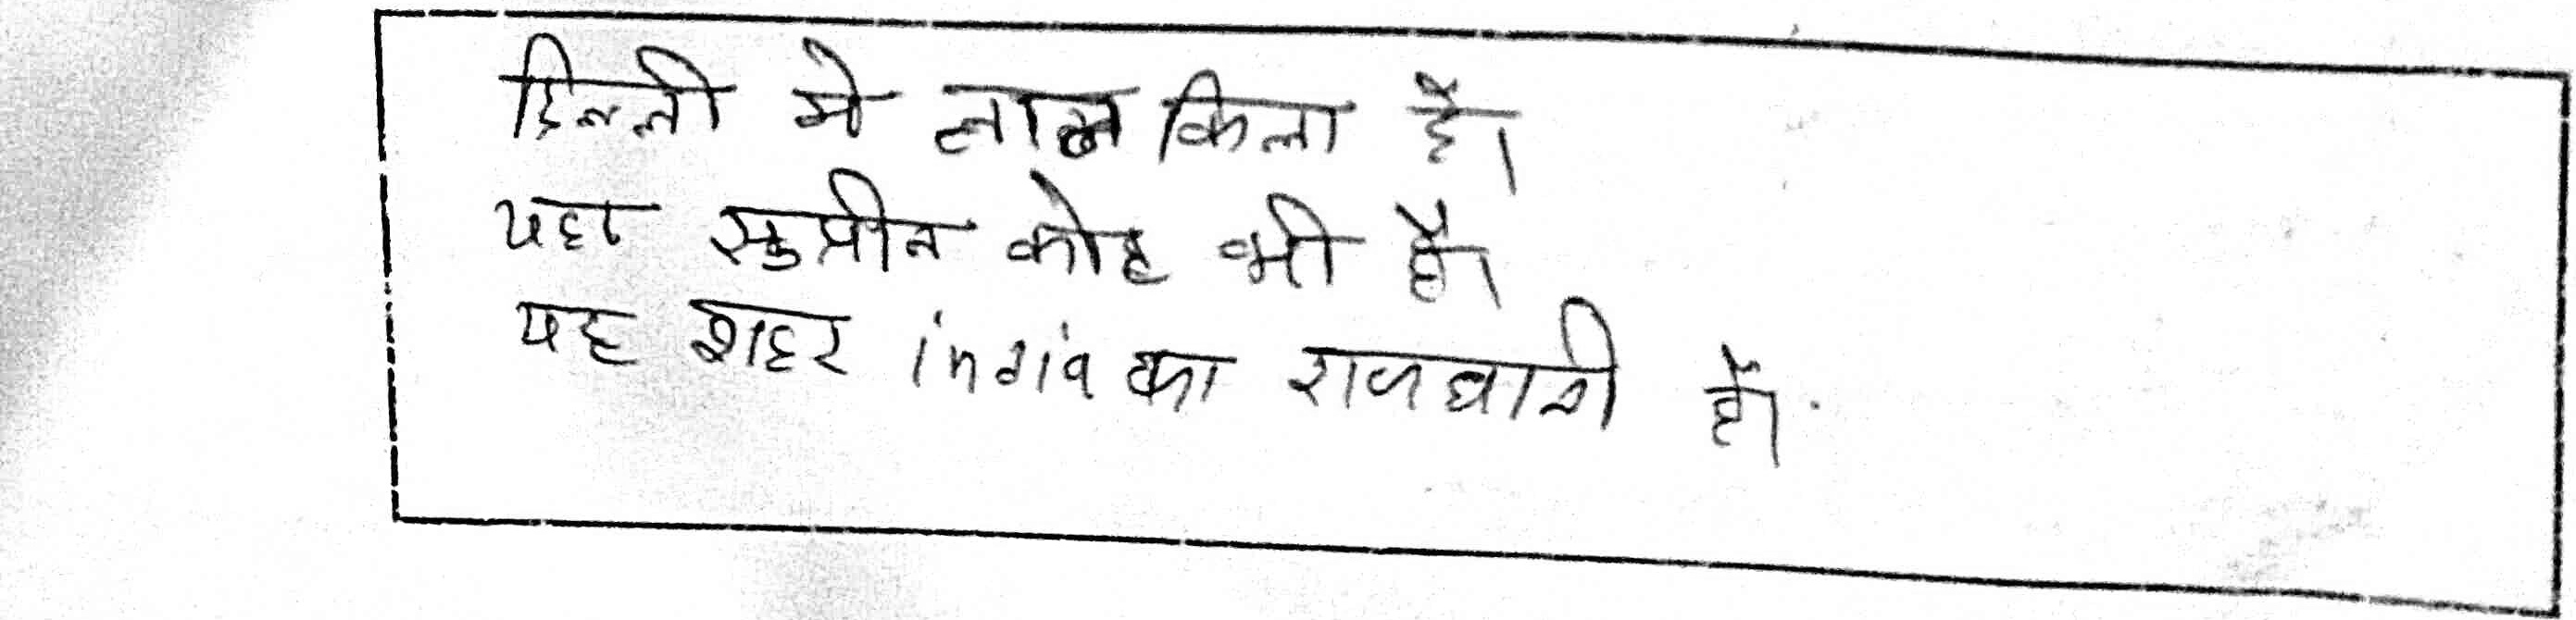 दिल्ली मे लाल किला है।
यहा सुप्रीन कोह भी है।
यह शहर india का राजधानी है।